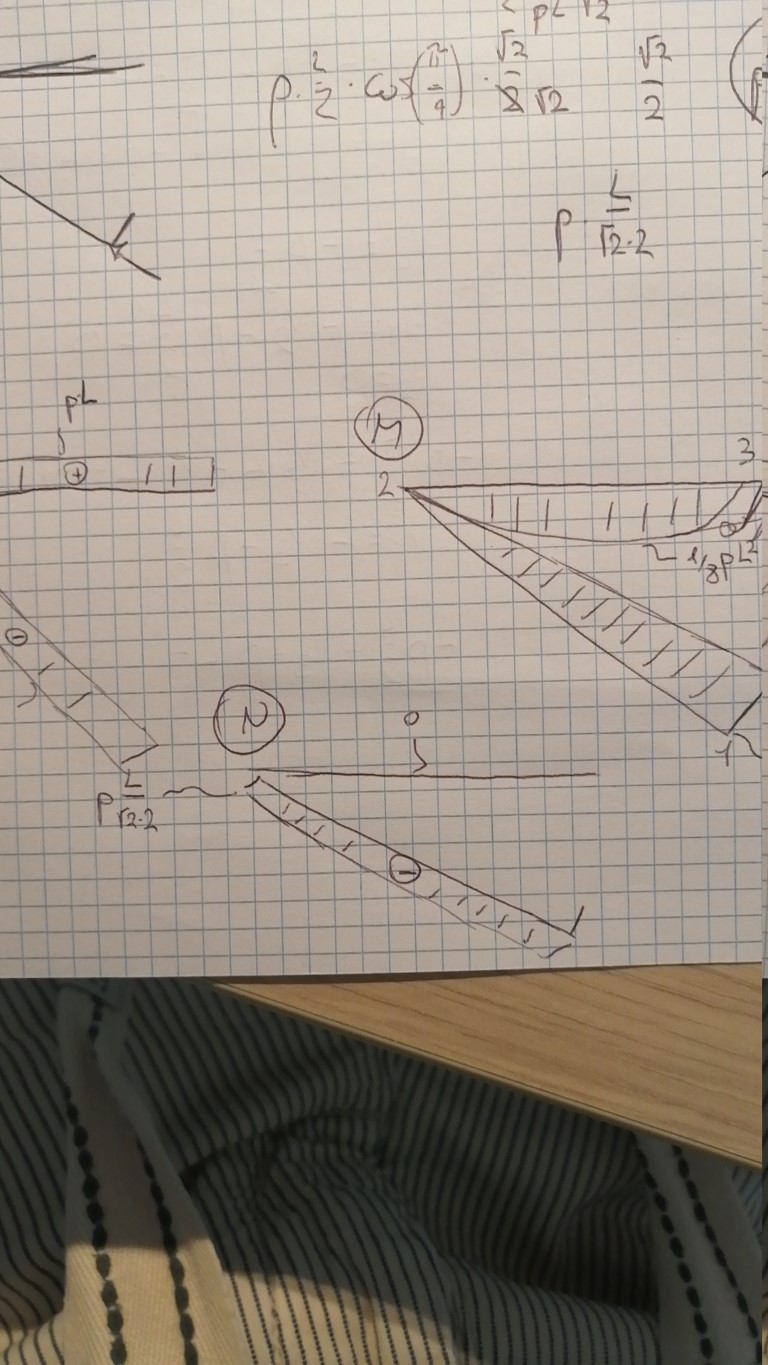 pL √2
p · L/2 · cos(π/4) · √2/2 √2 √2/2
p · L/(√2·2)
pL
+
M
2
3
1/8 pL²
-
N
0
1
p L/(√2·2)
-